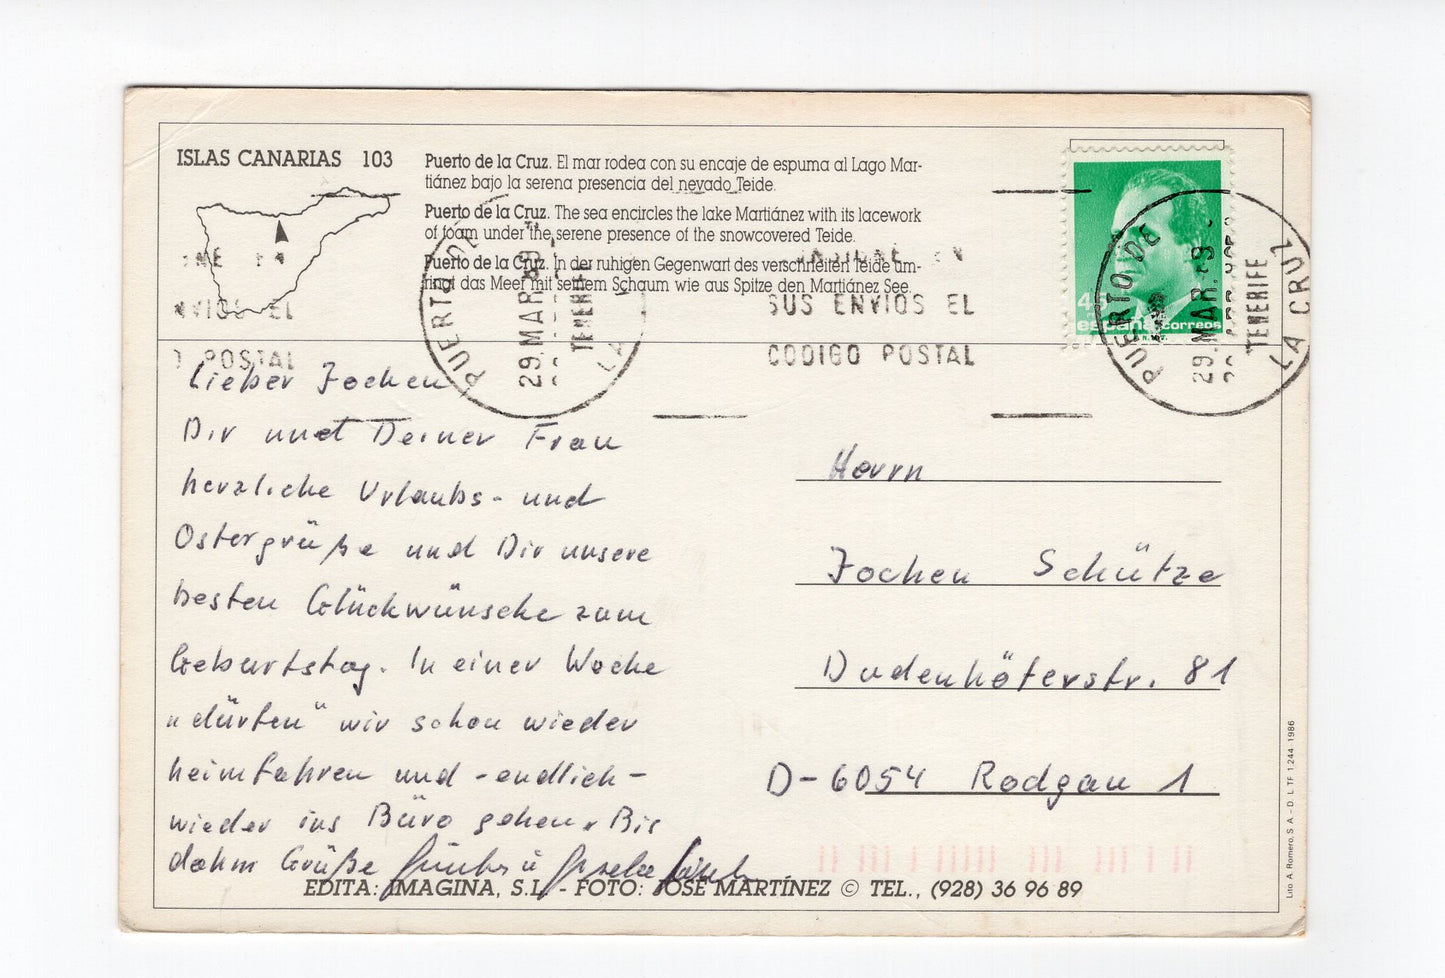 ISLAS CANARIAS 103
Puerto de la Cruz. El mar rodea con su encaje de espuma al Lago Mar-
tiánez bajo la serena presencia del nevado Teide.
Puerto de la Cruz. The sea encircles the lake Martiánez with its lacework
of foam under the serene presence of the snowcovered Teide.
Puerto de la Cruz. In der ruhigen Gegenwart des verschneiten Teide um-
ringt das Meer mit seinem Schaum wie aus Spitze den Martiánez See.
NVIOS EL
O POSTAL
PUERTO DE
LA
29.MAR.89
TENERIFE
EN
SUS ENVIOS EL
CODIGO POSTAL
españa correos
PUERTO DE
LA CRUZ
29.MAR.89
TENERIFE
Lieber Jochen
Dir und Deiner Frau
herzliche Urlaubs- und
Ostergrüße und Dir unsere
besten Glückwünsche zum
Geburtstag. In einer Woche
„dürfen“ wir schon wieder
heimfahren und -endlich-
wieder ins Büro gehen. Bis
dahin Grüße
Herrn
Jochen Schütze
Dudenhöferstr. 81
D-6054 Rodgau 1
EDITA: IMAGINA, S.L. - FOTO: JOSÉ MARTÍNEZ © TEL., (928) 36 96 89
Lito A. Romero, S. A. - D. L. TF 1.244 1986